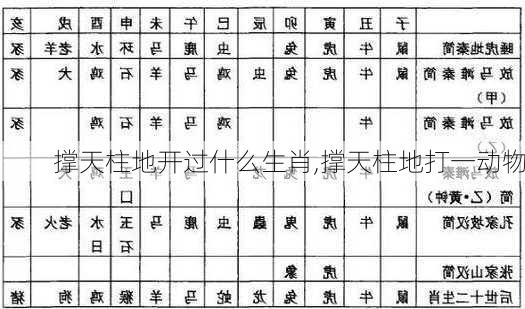 子 丑 寅 卯 辰 巳 午 未 申 酉 戌 亥
睡虎地秦简 鼠 牛 虎 兔 虫 鹿 马 环 水 老羊 豕
放马滩秦简 鼠 牛 虎 兔 虫 鸡 马 羊 石 鸡 犬 豕
（甲）
放马滩秦简 牛 鸡 马 羊 石 鸡 豕
撑天柱地开过什么生肖,撑天柱地打一动物
简（乙•黄钟） 口
孔家坡汉简 鼠 牛 虎 鬼 蟲 虫 鹿 马 玉 水 老火 豕
石 日
张家山汉简 虎
后世十二生肖 鼠 牛 虎 兔 龙 蛇 马 羊 猴 鸡 狗 猪